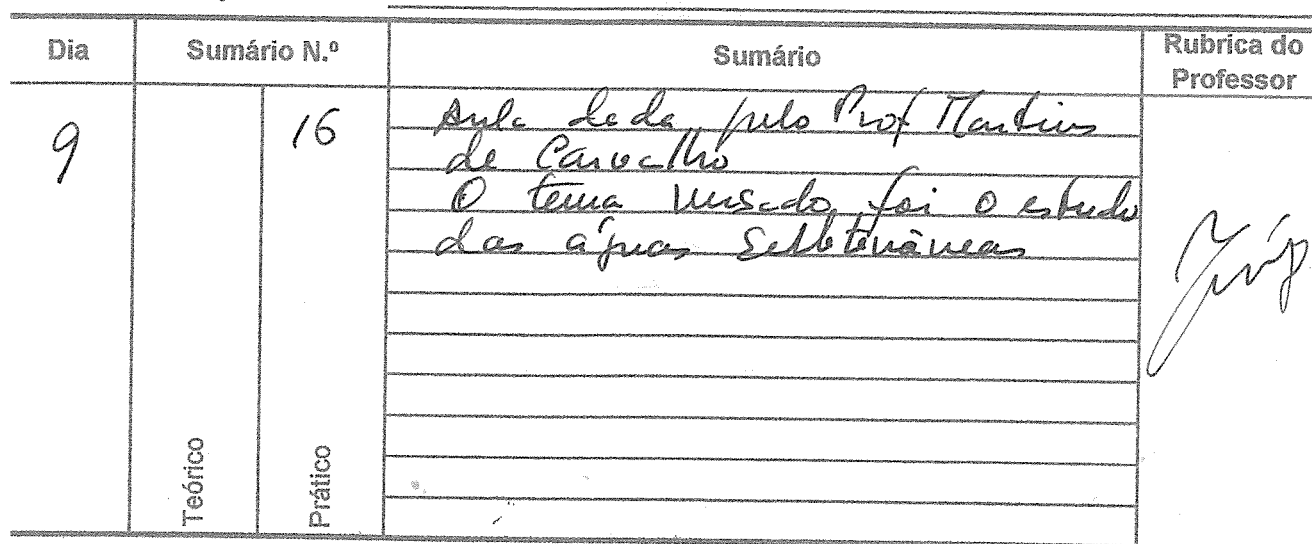 Dia Sumário N.º Sumário Rubrica do Professor
9 16 Aula dada pelo Prof Martins
de Carvalho
O tema versado foi o estudo
das águas Subterrâneas
Teórico Prático